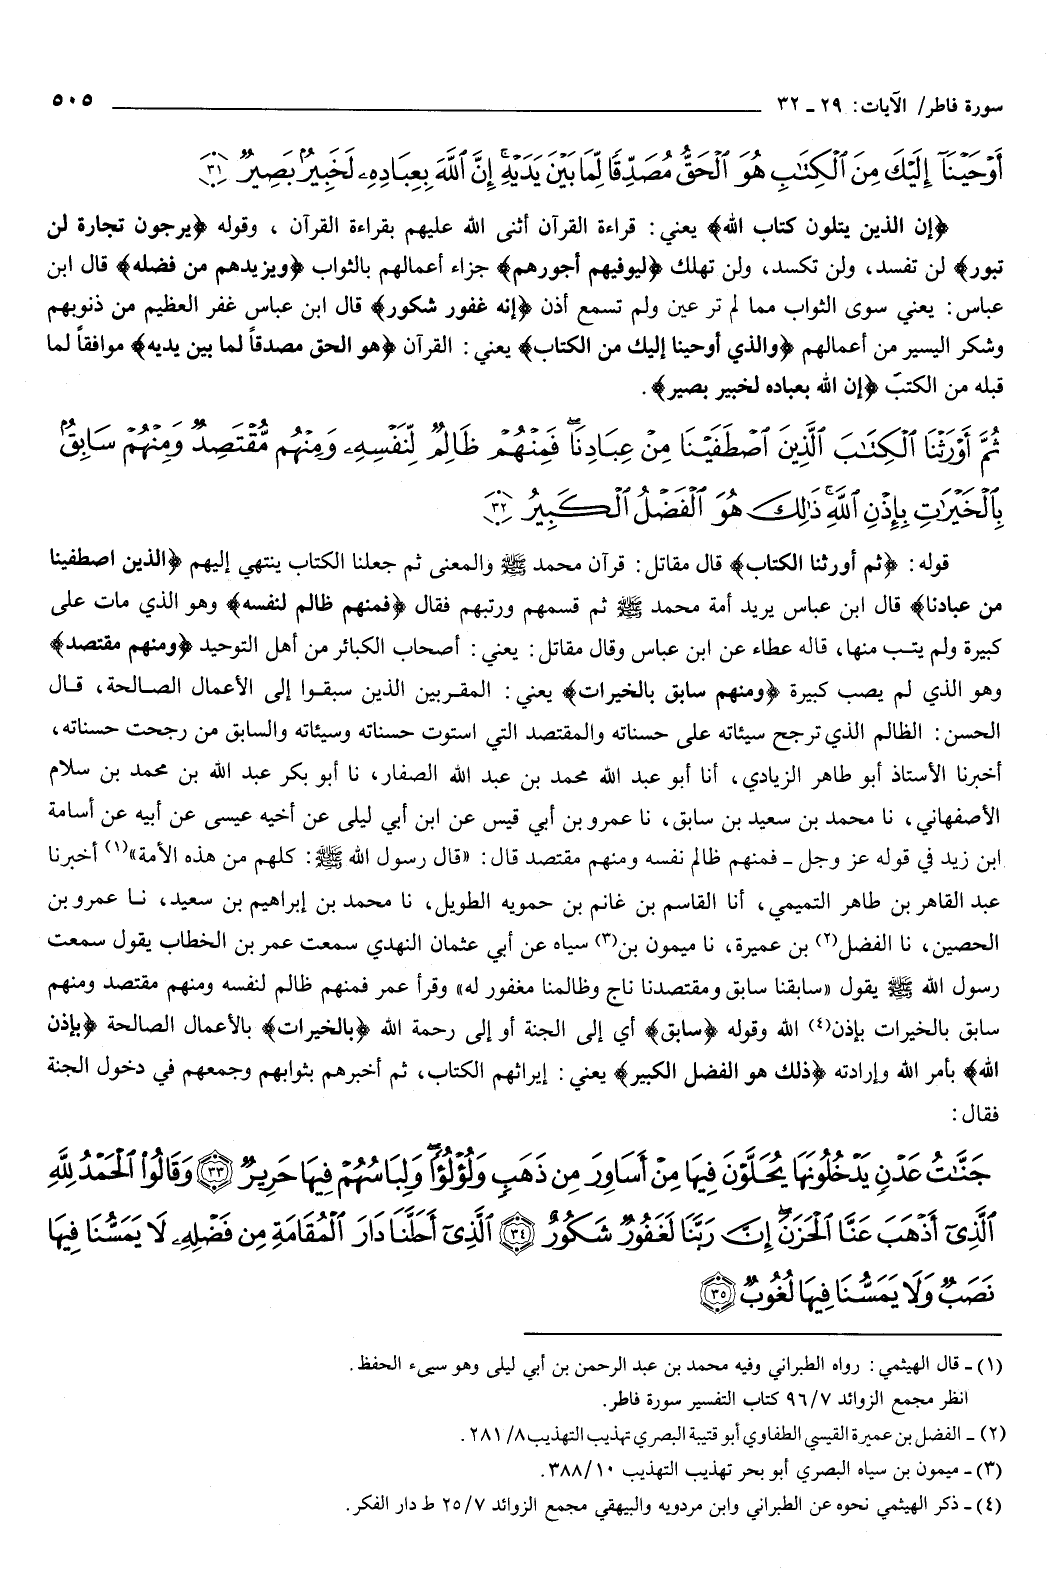 سورة فاطر/ الآيات: ٢٩ ـ ٣٢ ٥٠٥
أَوْحَيْنَآ إِلَيْكَ مِنَ ٱلْكِتَٰبِ هُوَ ٱلْحَقُّ مُصَدِّقًا لِّمَا بَيْنَ يَدَيْهِ ۗ إِنَّ ٱللَّهَ بِعِبَادِهِۦ لَخَبِيرٌۢ بَصِيرٌ ﴿٣١﴾
﴿إن الذين يتلون كتاب الله﴾ يعني: قراءة القرآن أثنى الله عليهم بقراءة القرآن ، وقوله ﴿يرجون تجارة لن
تبور﴾ لن تفسد، ولن تكسد، ولن تهلك ﴿ليوفيهم أجورهم﴾ جزاء أعمالهم بالثواب ﴿ويزيدهم من فضله﴾ قال ابن
عباس: يعني سوى الثواب مما لم تر عين ولم تسمع أذن ﴿إنه غفور شكور﴾ قال ابن عباس غفر العظيم من ذنوبهم
وشكر اليسير من أعمالهم ﴿والذي أوحينا إليك من الكتاب﴾ يعني: القرآن ﴿هو الحق مصدقاً لما بين يديه﴾ موافقاً لما
قبله من الكتبَ ﴿إن الله بعباده لخبير بصير﴾.
ثُمَّ أَوْرَثْنَا ٱلْكِتَٰبَ ٱلَّذِينَ ٱصْطَفَيْنَا مِنْ عِبَادِنَا ۖ فَمِنْهُمْ ظَالِمٌ لِّنَفْسِهِۦ وَمِنْهُم مُّقْتَصِدٌ وَمِنْهُمْ سَابِقٌۢ
بِٱلْخَيْرَٰتِ بِإِذْنِ ٱللَّهِ ۚ ذَٰلِكَ هُوَ ٱلْفَضْلُ ٱلْكَبِيرُ ﴿٣٢﴾
قوله: ﴿ثم أورثنا الكتاب﴾ قال مقاتل: قرآن محمد ﷺ والمعنى ثم جعلنا الكتاب ينتهي إليهم ﴿الذين اصطفينا
من عبادنا﴾ قال ابن عباس يريد أمة محمد ﷺ ثم قسمهم ورتبهم فقال ﴿فمنهم ظالم لنفسه﴾ وهو الذي مات على
كبيرة ولم يتب منها، قاله عطاء عن ابن عباس وقال مقاتل: يعني: أصحاب الكبائر من أهل التوحيد ﴿ومنهم مقتصد﴾
وهو الذي لم يصب كبيرة ﴿ومنهم سابق بالخيرات﴾ يعني: المقربين الذين سبقوا إلى الأعمال الصالحة، قال
الحسن: الظالم الذي ترجح سيئاته على حسناته والمقتصد التي استوت حسناته وسيئاته والسابق من رجحت حسناته،
أخبرنا الأستاذ أبو طاهر الزيادي، أنا أبو عبد الله محمد بن عبد الله الصفار، نا أبو بكر عبد الله بن محمد بن سلام
الأصفهاني، نا محمد بن سعيد بن سابق، نا عمرو بن أبي قيس عن ابن أبي ليلى عن أخيه عيسى عن أبيه عن أسامة
ابن زيد في قوله عز وجل ـ فمنهم ظالم نفسه ومنهم مقتصد قال: «قال رسول الله ﷺ: كلهم من هذه الأمة»(١) أخبرنا
عبد القاهر بن طاهر التميمي، أنا القاسم بن غانم بن حمويه الطويل، نا محمد بن إبراهيم بن سعيد، نا عمرو بن
الحصين، نا الفضل(٢) بن عميرة، نا ميمون بن(٣) سياه عن أبي عثمان النهدي سمعت عمر بن الخطاب يقول سمعت
رسول الله ﷺ يقول «سابقنا سابق ومقتصدنا ناج وظالمنا مغفور له» وقرأ عمر فمنهم ظالم لنفسه ومنهم مقتصد ومنهم
سابق بالخيرات بإذن(٤) الله وقوله ﴿سابق﴾ أي إلى الجنة أو إلى رحمة الله ﴿بالخيرات﴾ بالأعمال الصالحة ﴿بإذن
الله﴾ بأمر الله وإرادته ﴿ذلك هو الفضل الكبير﴾ يعني: إيراثهم الكتاب، ثم أخبرهم بثوابهم وجمعهم في دخول الجنة
فقال:
جَنَّٰتُ عَدْنٍ يَدْخُلُونَهَا يُحَلَّوْنَ فِيهَا مِنْ أَسَاوِرَ مِن ذَهَبٍ وَلُؤْلُؤًا ۖ وَلِبَاسُهُمْ فِيهَا حَرِيرٌ ﴿٣٣﴾ وَقَالُوا۟ ٱلْحَمْدُ لِلَّهِ
ٱلَّذِىٓ أَذْهَبَ عَنَّا ٱلْحَزَنَ ۖ إِنَّ رَبَّنَا لَغَفُورٌ شَكُورٌ ﴿٣٤﴾ ٱلَّذِىٓ أَحَلَّنَا دَارَ ٱلْمُقَامَةِ مِن فَضْلِهِۦ لَا يَمَسُّنَا فِيهَا
نَصَبٌ وَلَا يَمَسُّنَا فِيهَا لُغُوبٌ ﴿٣٥﴾
(١) ـ قال الهيثمي: رواه الطبراني وفيه محمد بن عبد الرحمن بن أبي ليلى وهو سيىء الحفظ.
انظر مجمع الزوائد ٩٦/٧ كتاب التفسير سورة فاطر.
(٢) ـ الفضل بن عميرة القيسي الطفاوي أبو قتيبة البصري تهذيب التهذيب ٢٨١/٨.
(٣) ـ ميمون بن سياه البصري أبو بحر تهذيب التهذيب ٣٨٨/١٠.
(٤) ـ ذكر الهيثمي نحوه عن الطبراني وابن مردويه والبيهقي مجمع الزوائد ٢٥/٧ ط دار الفكر.